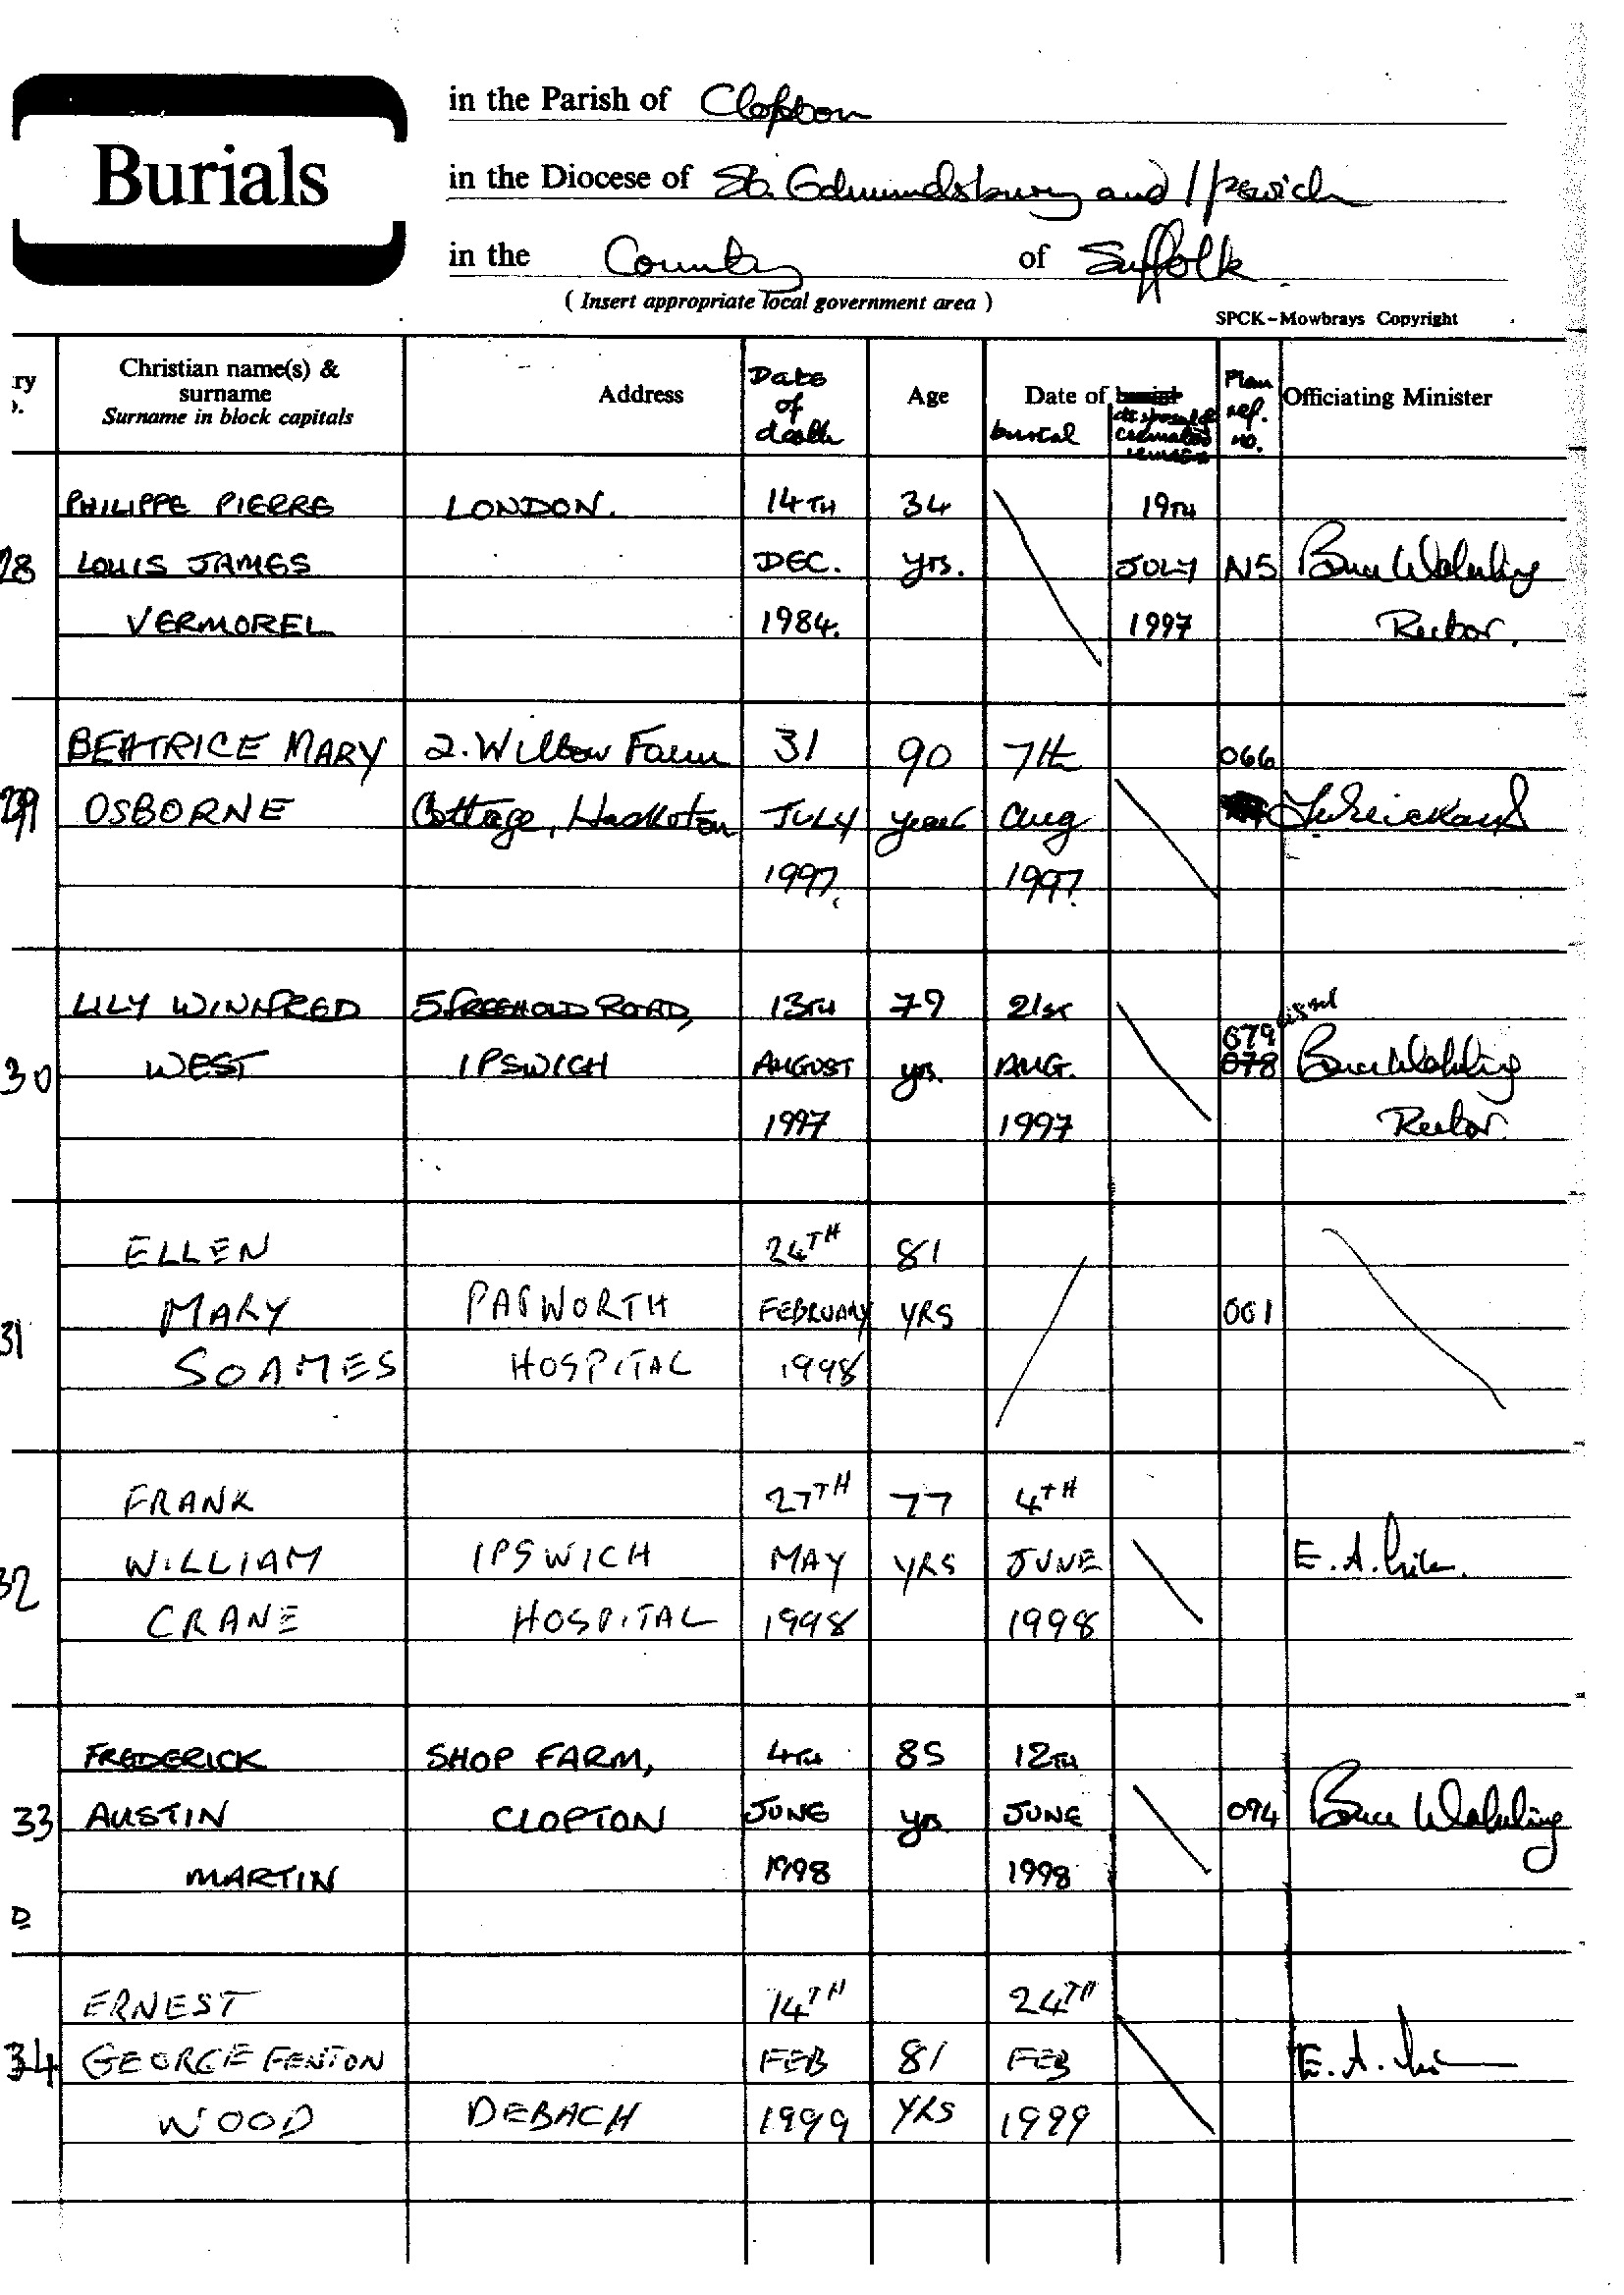 Burials
in the Parish of Clopton
in the Diocese of St. Edmundsbury and Ipswich
in the County of Suffolk
( Insert appropriate local government area )
SPCK-Mowbrays Copyright
ry Christian name(s) & surname Surname in block capitals
Address
Date of death
Age
Date of burial
cremated remains
Plan ref. no.
Officiating Minister
PHILIPPE PIERRE LONDON. 14TH 34 19TH
28 LOUIS JAMES DEC. yrs. JULY N5
VERMOREL 1984. 1997 Rector.
BEATRICE MARY 2. Willow Farm 31 90 7th 066
29 OSBORNE Cottage, Hasketon JULY years Aug
1997. 1997.
LILY WINIFRED 5 FREEHOLD ROAD, 13TH 79 21st 079
30 WEST IPSWICH AUGUST yrs. AUG. 078
1997 1997 Rector.
ELLEN 24TH 81
31 MARY PAPWORTH FEBRUARY YRS 001
SOAMES HOSPITAL 1998
FRANK 27TH 77 4TH
32 WILLIAM IPSWICH MAY YRS JUNE E. A.
CRANE HOSPITAL 1998 1998
FREDERICK SHOP FARM, 4TH 85 12TH
33 AUSTIN CLOPTON JUNE yrs JUNE 094
MARTIN 1998 1998
D
ERNEST 14TH 24TH
34 GEORGE FENTON FEB 81 FEB E. A.
WOOD DEBACH 1999 YRS 1999